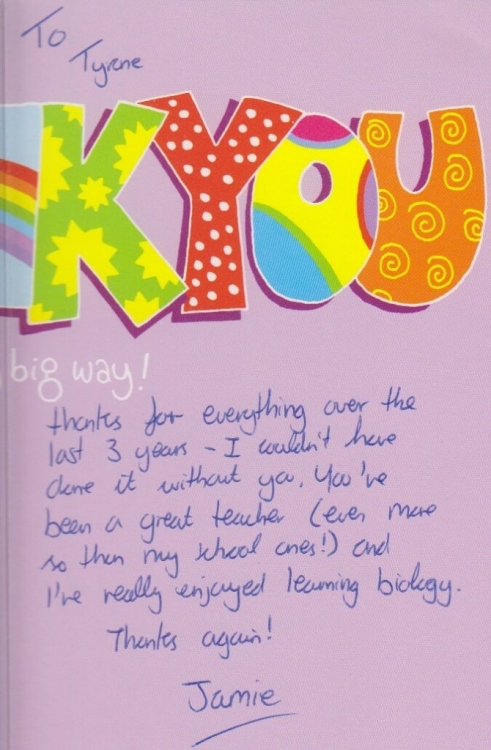 To
Tyrone
KYOU
big way!
thanks for everything over the
last 3 years - I couldn't have
done it without you. You've
been a great teacher (even more
so than my school ones!) and
I've really enjoyed learning biology.
Thanks again!
Jamie